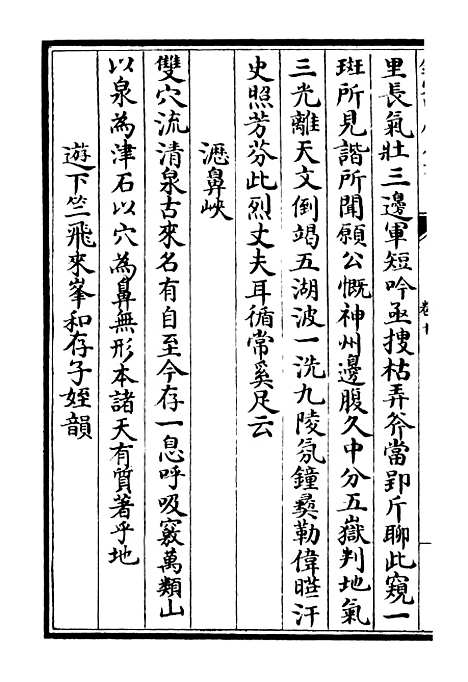 里長氣壯三邊軍短吟亟搜枯弄斧當郢斤聊此窺一
斑所見諧所聞願公慨神州邊腹久中分五嶽判地氣
三光離天文倒竭五湖波一洗九陵氛鐘彝勒偉晤汗
史照芳芬此烈丈夫耳循常奚足云
瀝鼻峽
雙穴流清泉古來名有自至今存一息呼吸竅萬類山
以泉為津石以穴為鼻無形本諸天有質著乎地
遊下竺飛來峯和存子姪韻